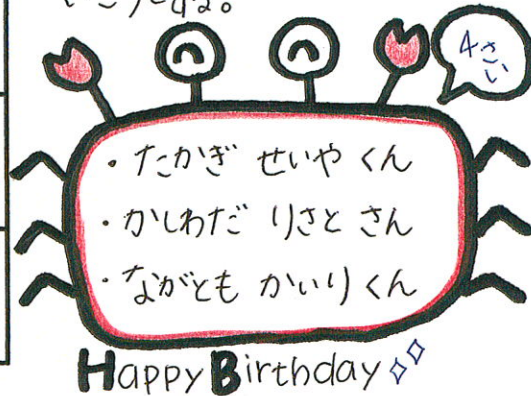 4さい
・たかぎ せいや くん
・かしわだ りさと さん
・ながとも かいり くん
Happy Birthday